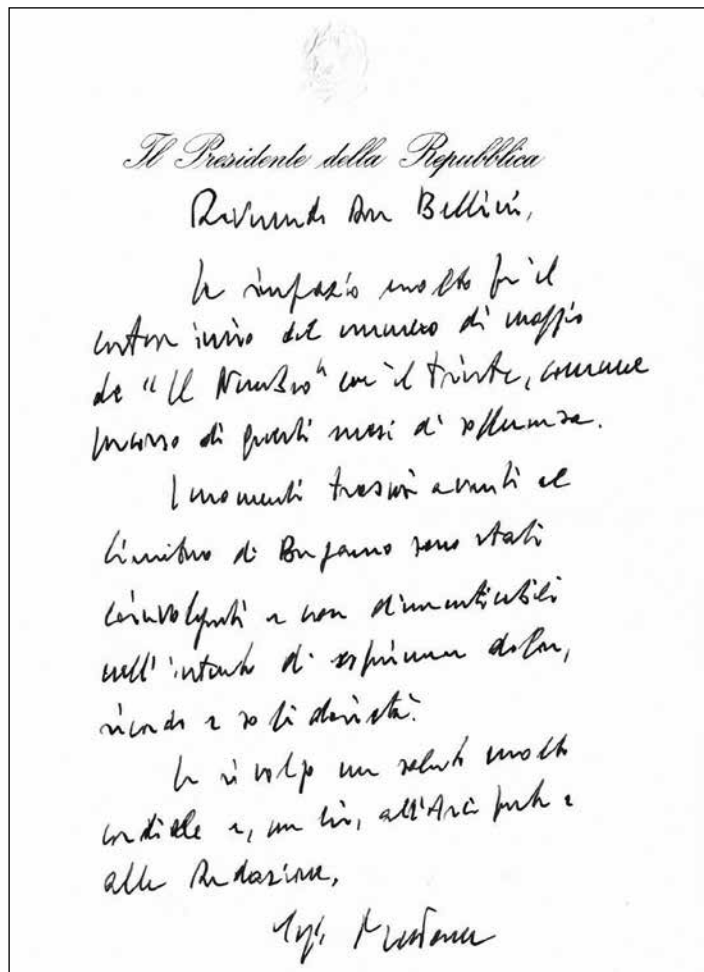 Il Presidente della Repubblica
Reverendo Don Bellini,
la ringrazio molto per il
cortese invio del numero di maggio
de "Il Nembro" con il triste, comune
percorso di questi mesi di sofferenza.
I momenti trascorsi avanti al
Cimitero di Bergamo sono stati
coinvolgenti e non dimenticabili
nell'intento di esprimere dolore,
ricordo e solidarietà.
Le rivolgo un saluto molto
cordiale e, con lei, all'Arciprete e
alla Redazione,